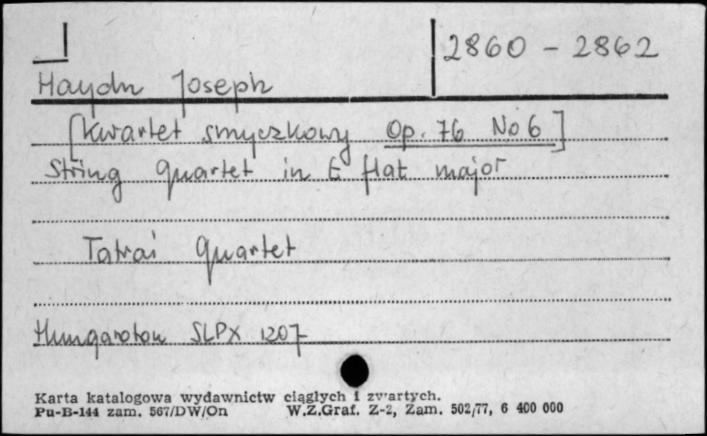 2860 - 2862
Haydn Joseph
[Kwartet smyczkowy Op. 76 No 6]
String quartet in E flat major
Tatrai Quartet
Hungaroton SLPX 1207
Karta katalogowa wydawnictw ciągłych i zwartych.
Pu-B-144 zam. 567/DW/On W.Z.Graf. Z-2, Zam. 502/77, 6 400 000